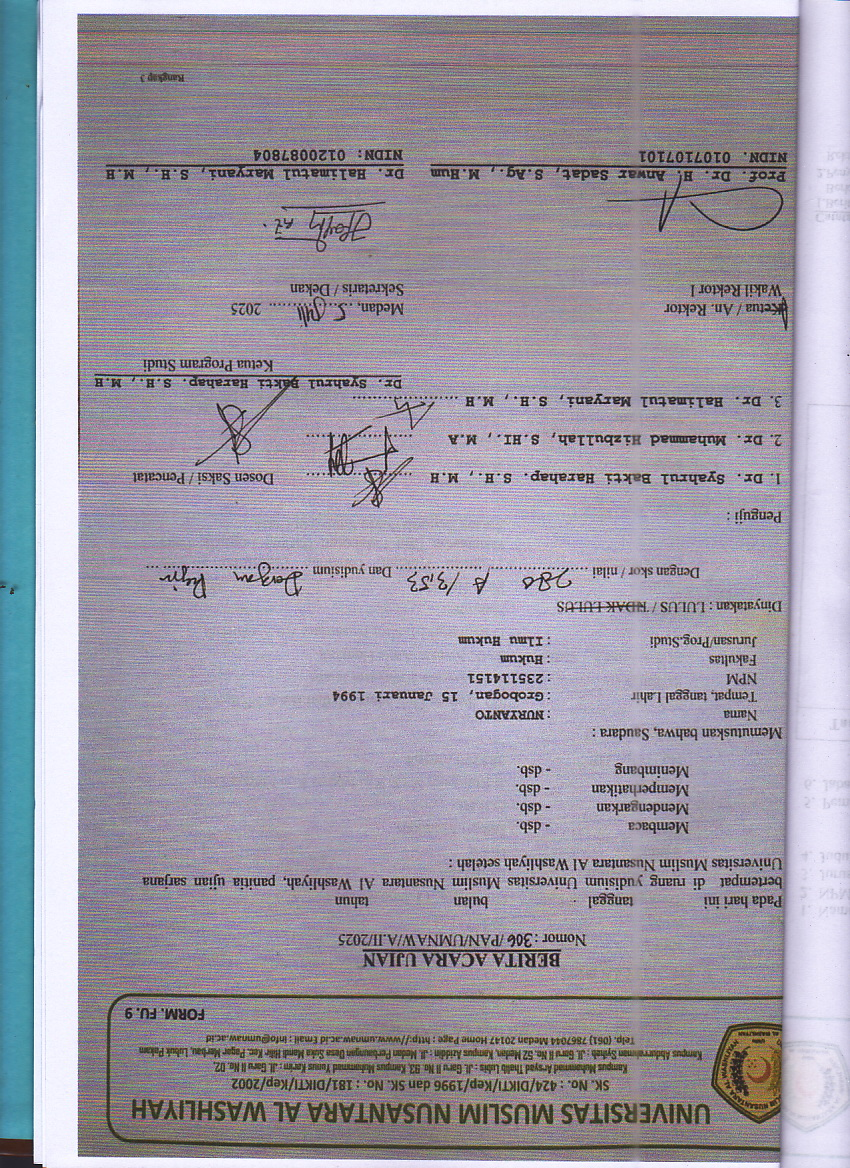 UNIVERSITAS MUSLIM NUSANTARA AL WASHLIYAH
SK. No. : 424/DIKTI/Kep/1996 dan SK. No. : 181/DIKTI/Kep/2002
Kampus Muhammad Arsyad Thalib Lubis : Jl. Garu II No. 93, Kampus Muhammad Yunus Karim : Jl. Garu II No. 02,
Kampus Abdurrahman Syihab : Jl. Garu II No. 52 Medan, Kampus Ariddin : Jl. Medan Perbaungan Desa Suka Mandi Hilir Kec. Pagar Merbau, Lubuk Pakam
Telp. (061) 7867044 Medan 20147 Home Page : http://www.umnaw.ac.id Email : info@umnaw.ac.id
FORM. FU. 9
BERITA ACARA UJIAN
Nomor : 306 /PAN/UMNAW/A.II/2025
Pada hari ini tanggal bulan tahun
bertempat di ruang yudisium Universitas Muslim Nusantara Al Washliyah, panitia ujian sarjana
Universitas Muslim Nusantara Al Washliyah setelah :
Membaca - dsb.
Mendengarkan - dsb.
Memperhatikan - dsb.
Menimbang - dsb.
Memutuskan bahwa, Saudara :
Nama : NURYANTO
Tempat, tanggal Lahir : Grobogan, 15 Januari 1994
NPM : 235114151
Fakultas : Hukum
Jurusan/Prog.Studi : Ilmu Hukum
Dinyatakan : LULUS / TIDAK LULUS
Dengan skor / nilai 280 A /3,53 Dan yudisium Dengan
Penguji :
1. Dr. Syahrul Bakti Harahap. S.H., M.H
Dosen Saksi / Pencatat
2. Dr. Muhammad Hizbullah, S.HI., M.A
3. Dr. Halimatul Maryani, S.H., M.H
Dr. Syahrul Bakti Harahap. S.H., M.H
Ketua Program Studi
Ketua / An. Rektor
Wakil Rektor I
Medan, 5 Juli 2025
Sekretaris / Dekan
Prof. Dr. H. Anwar Sadat, S.Ag., M.Hum
NIDN. 0107107101
Dr. Halimatul Maryani, S.H., M.H
NIDN: 0120087804
Rangkap 3